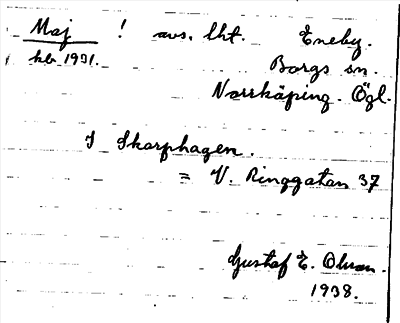 Maj ! avs. lht. Eneby.
hb 1931. Borgs sn.
Norrköping. Ögl.
I Skarphagen.
= V. Ringgatan 37
Gustaf E. Olsson.
1938.